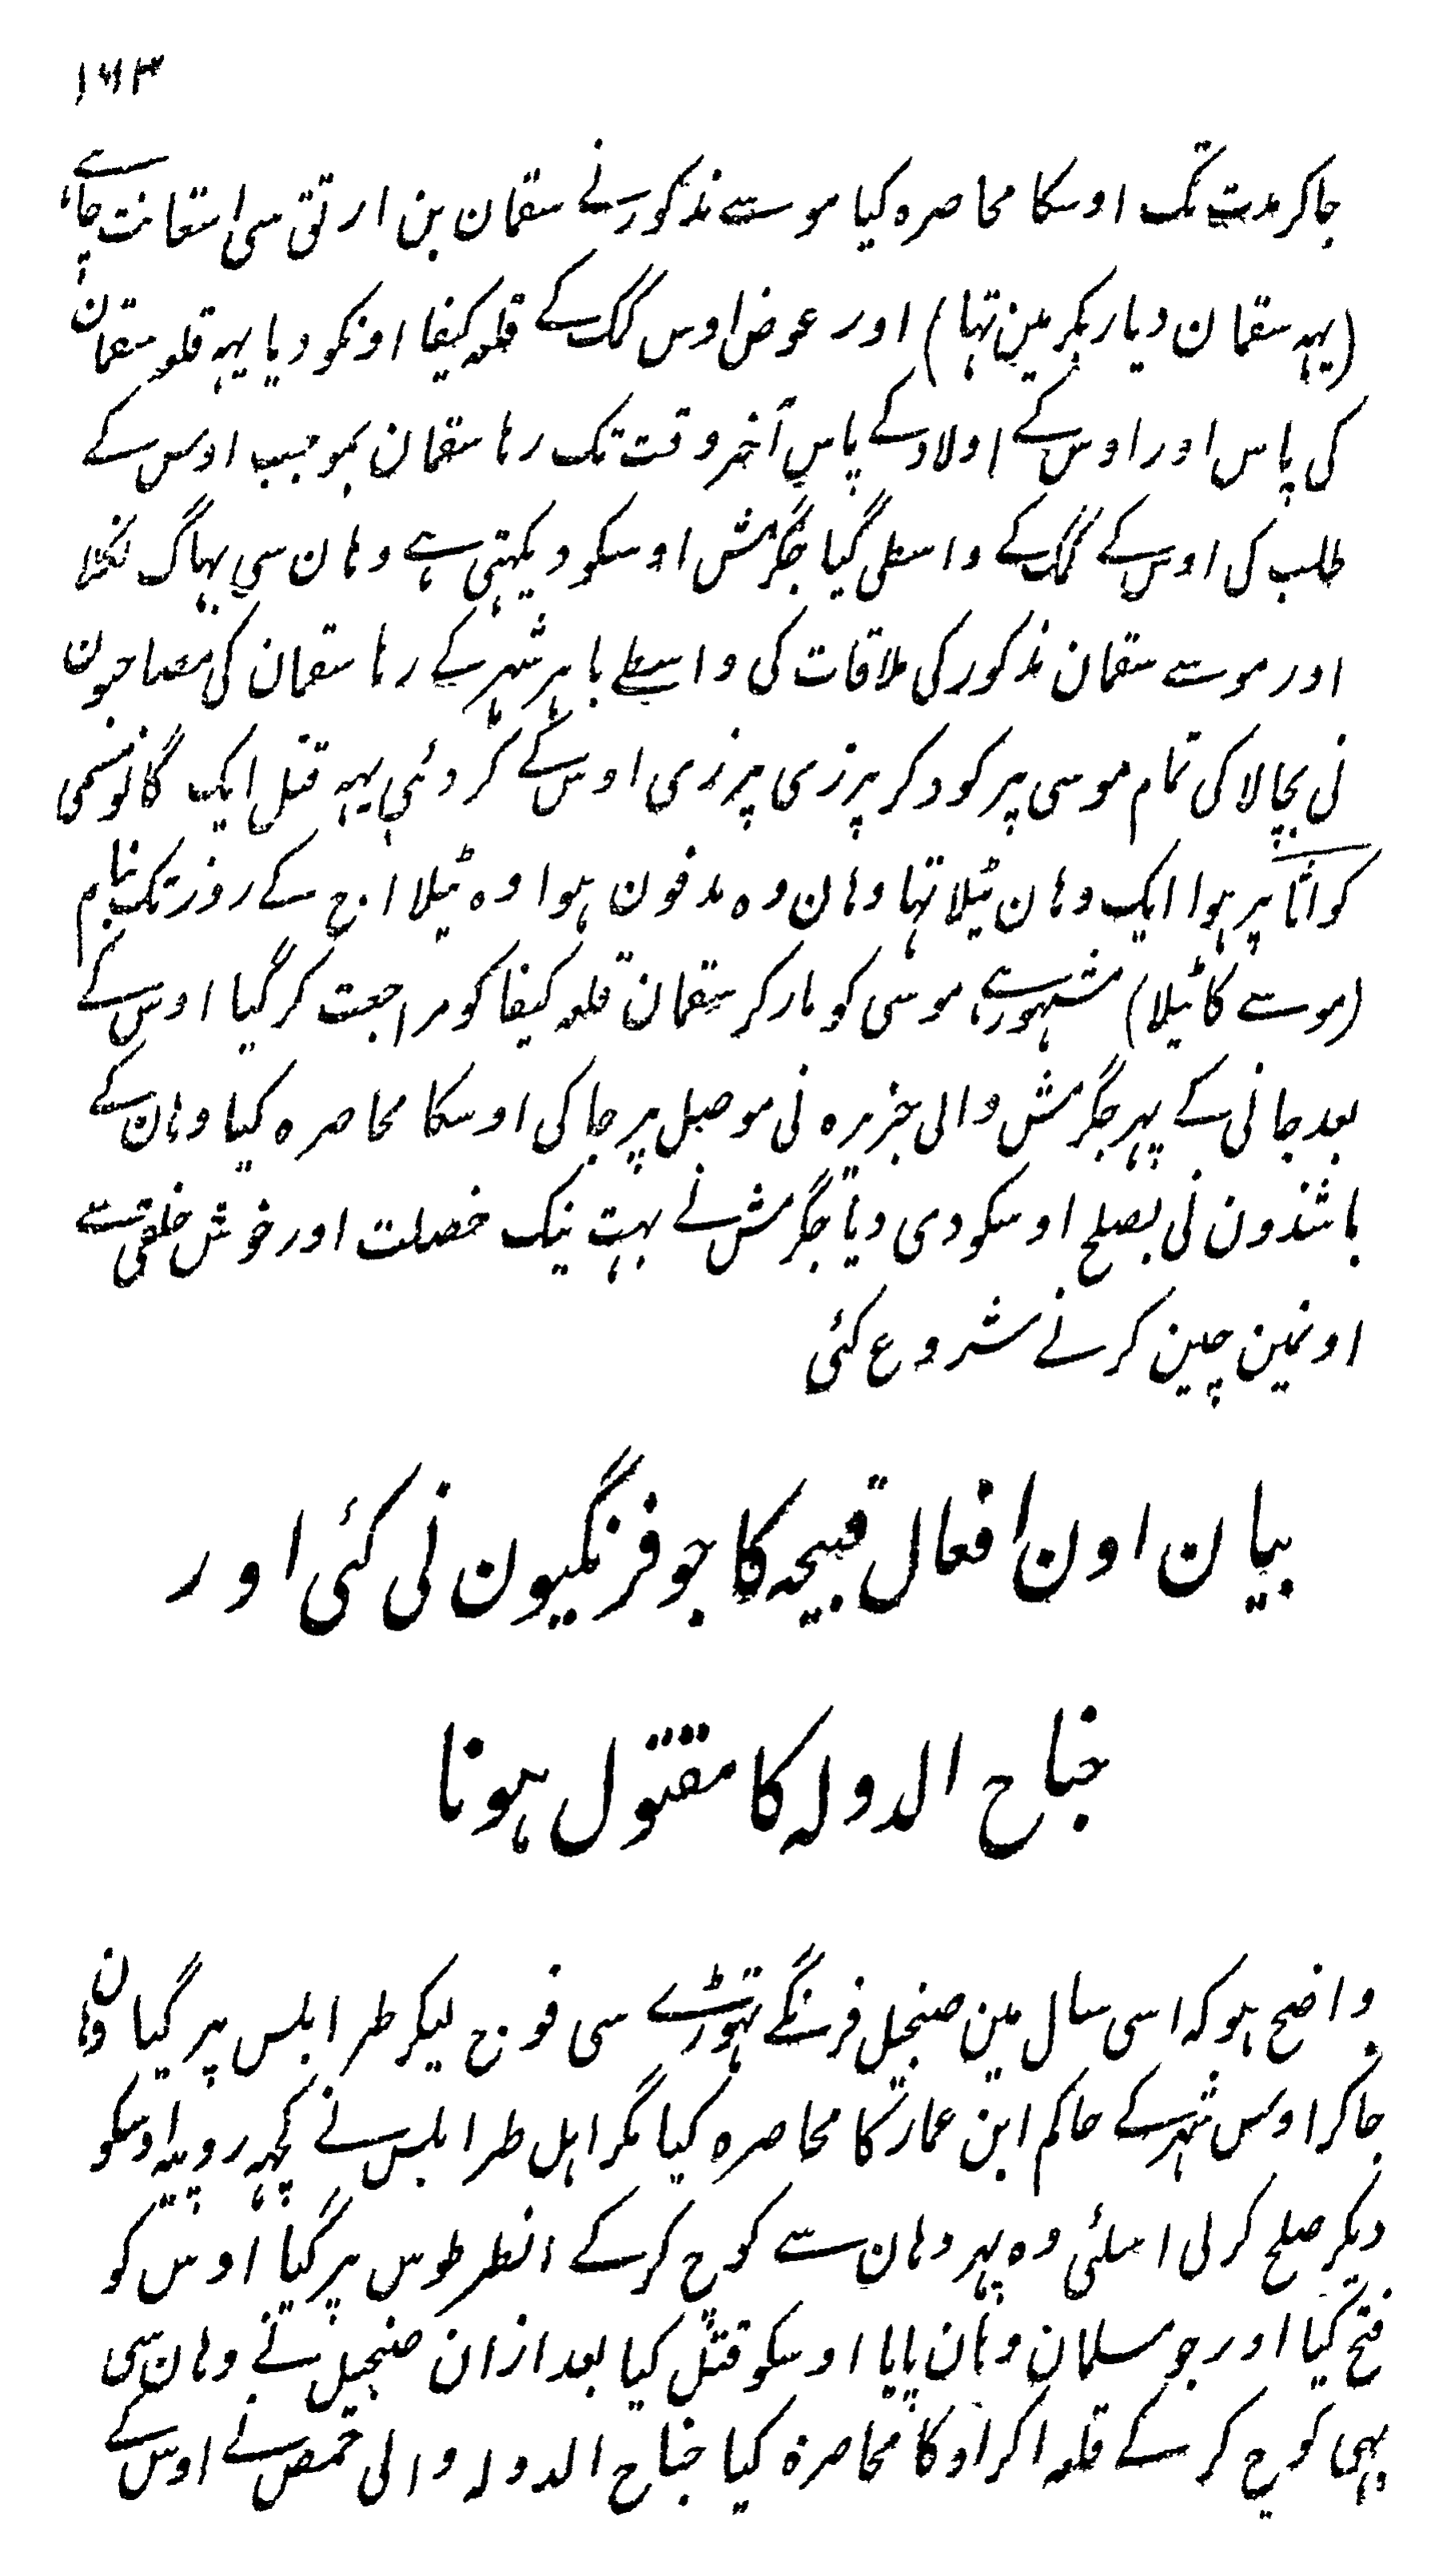 ۱۶۳
جاکر مدت تک اوسکا محاصرہ کیا موسے مذکور نے سقمان بن ارتق سی استعانت چاہے
(یہہ سقمان دیار بکر مین تہا) اور عوض اوس کمک کے قلعہ کیفا اونکو دیا یہہ قلعہ سقمان
کی پاس اور اوس کے اولاد کے پاس آخر وقت تک رہا سقمان بموجب اوس کے
طلب کی اوس کے کمک کے واسطی گیا جگرمش اوسکو دیکہتی ہے وہان سی بہاگ نکلا
اور موسے سقمان مذکور کی ملاقات کی واسطے باہر شہر کے رہا سقمان کی مصاحبون
نی بچالاکی تمام موسی پر کود کر پرزی پرزی اوس کے کر دئی یہہ قتل ایک گانو مسمی
کواثا پر ہوا ایک وہان ٹیلا تہا وہان وہ مدفون ہوا وہ ٹیلا اج کے روز تک بنام
(موسے کا ٹیلا) مشہور ہے موسی کو مار کر سقمان قلعہ کیفا کو مراجعت کر گیا اوس کے
بعد جانی کے پہر جگرمش والی جزیرہ نی موصل پر جا کی اوسکا محاصرہ کیا وہان کے
باشندون نی بصلح اوسکو دی دیا جگرمش نے بہت نیک خصلت اور خوش خلقی سے
اونمین چین کرنے شروع کئی
بیان اون افعال قبیحہ کا جو فرنگیون نی کئی اور
جناح الدولہ کا مقتول ہونا
واضح ہو کہ اسی سال مین صنجیل فرنگے تہوڑے سی فوج لیکر طرابلس پر گیا وہان
جاکر اوس شہر کے حاکم ابن عمار کا محاصرہ کیا مگر اہل طرابلس نے کچہہ روپیہ اوسکو
دیکر صلح کر لی اسلئی وہ پہر وہان سے کوچ کر کے انطرطوس پر گیا اوس کو
فتح کیا اور جو مسلمان وہان پایا اوسکو قتل کیا بعد ازان صنجیل نے وہان سی
بہی کوچ کر کے قلعہ اکراد کا محاصرہ کیا جناح الدولہ والی حمص نے اوس کے